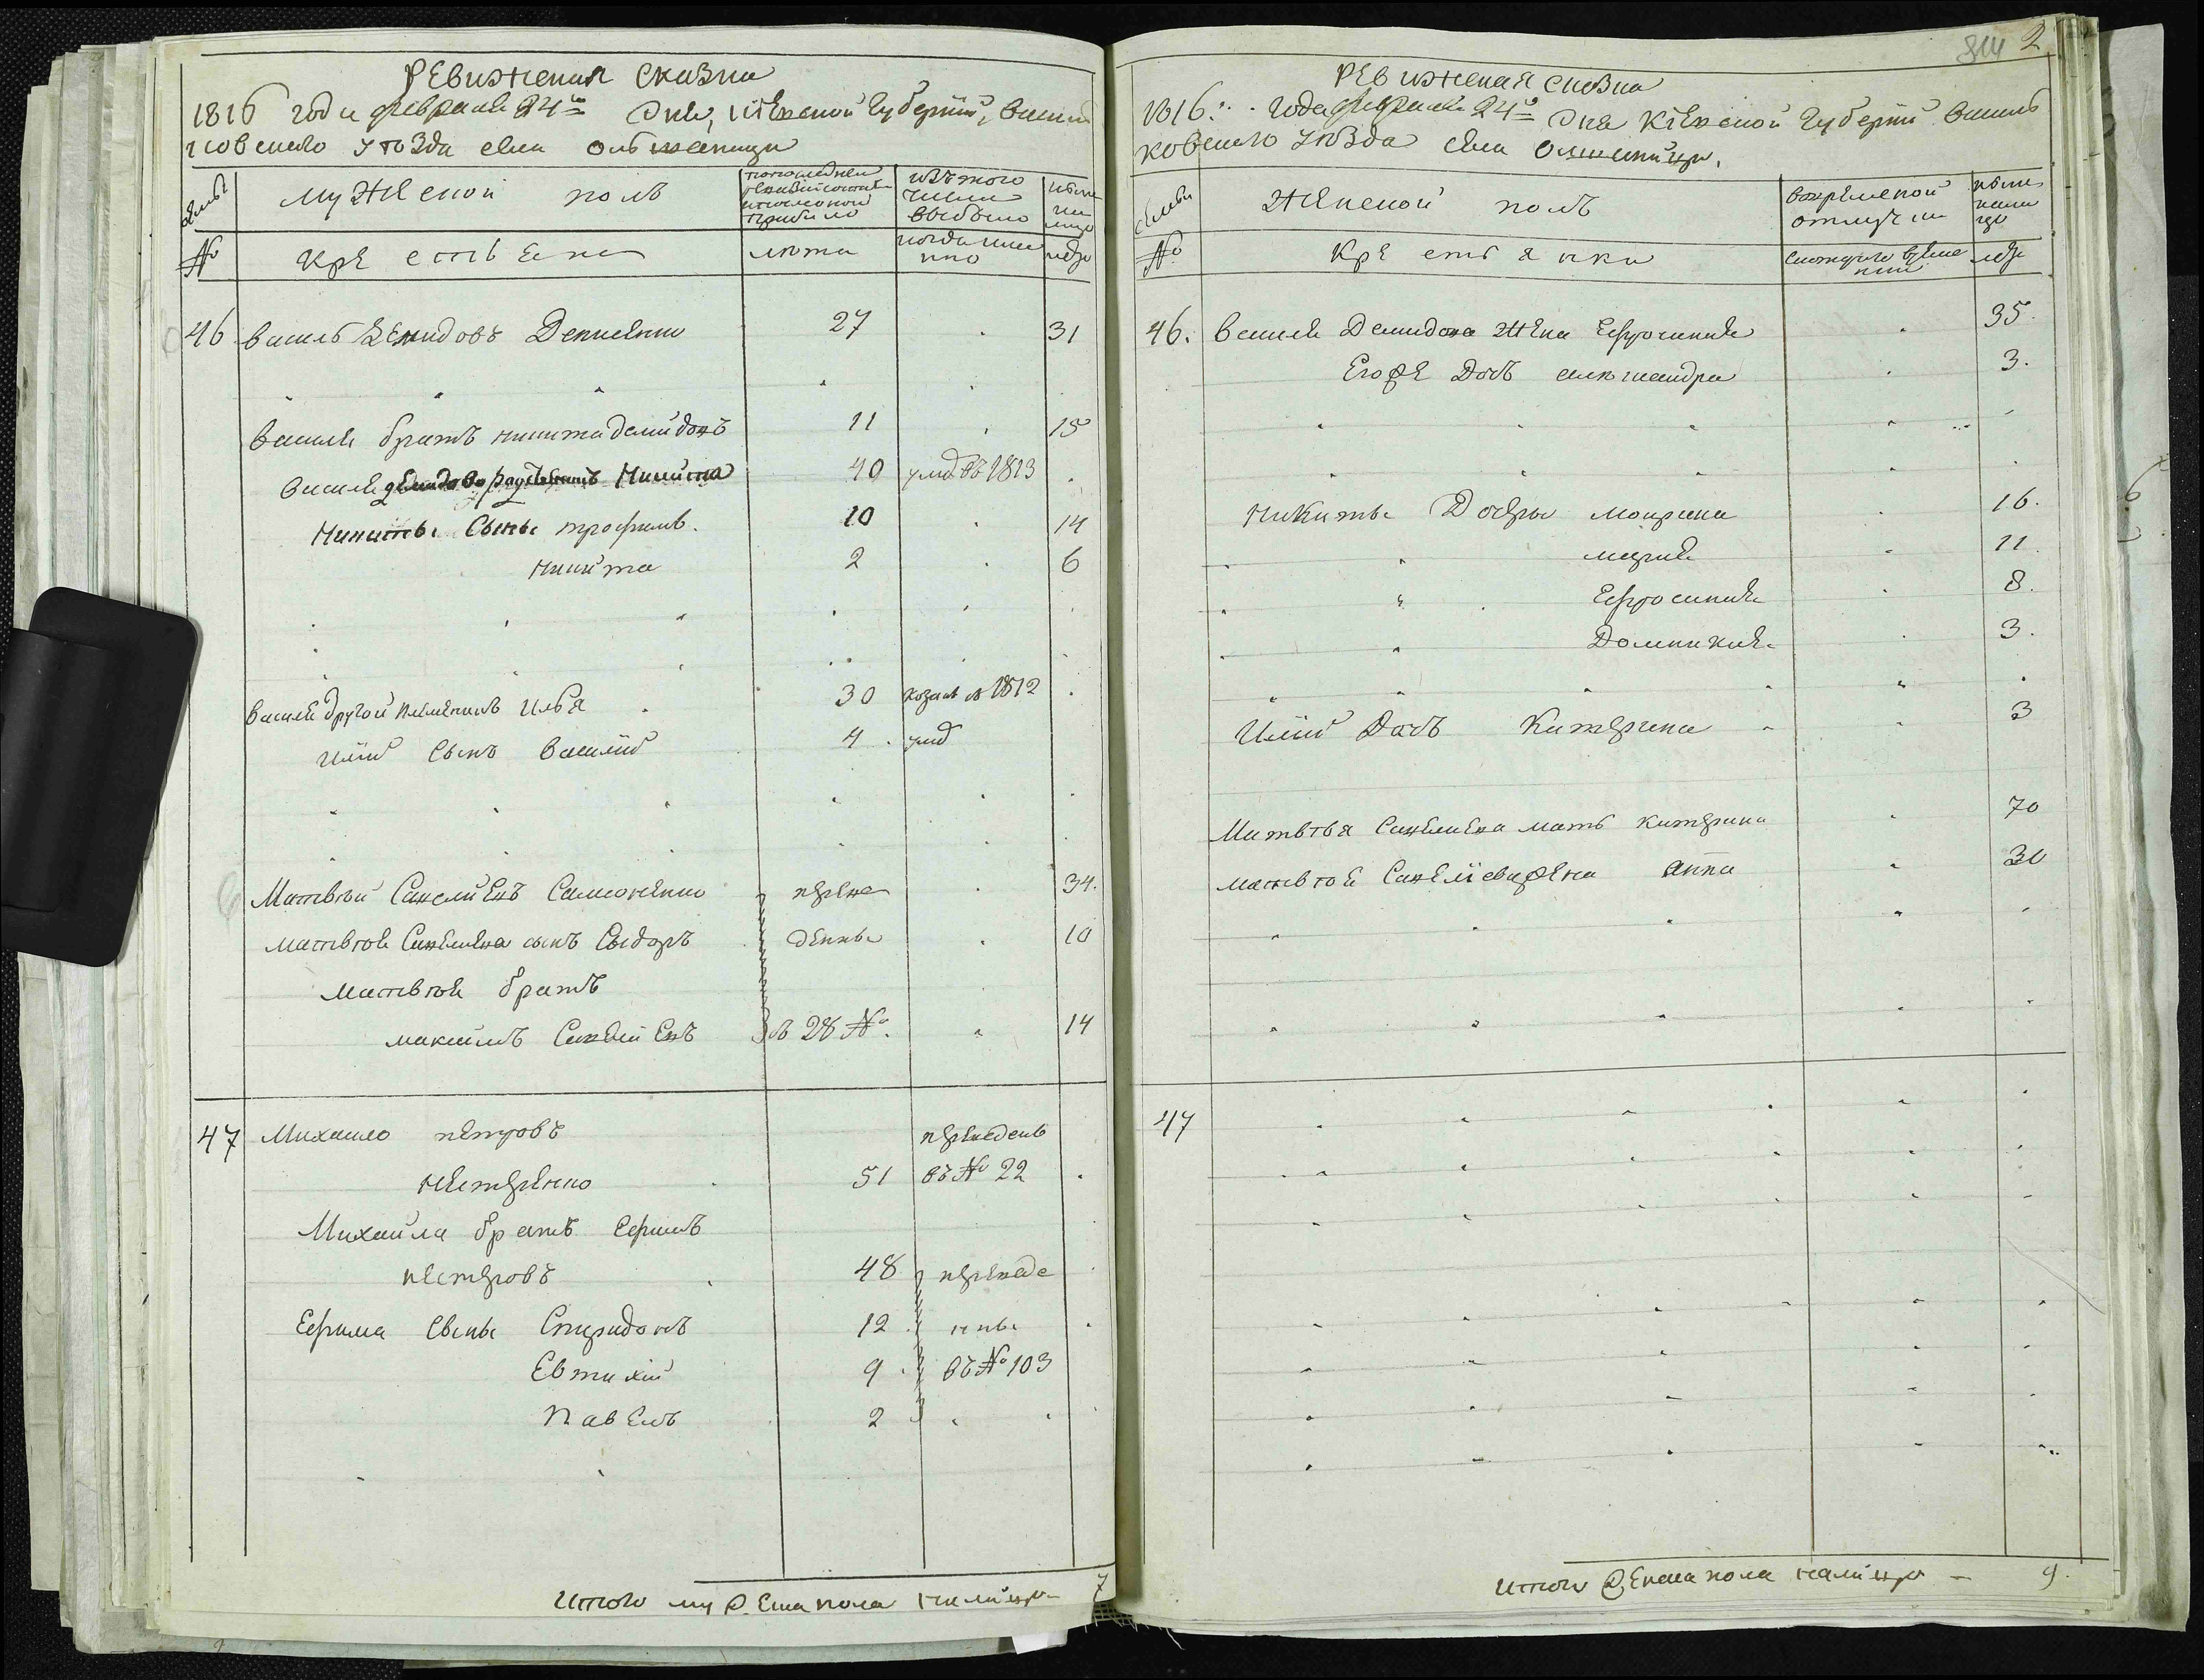 Ревижская сказка
1816 года февраля 24го Дня, Кіевской Губерніи, Василь
ковского уѣзда села Ольшаницы
семьи
мужеской полъ
изъ того
числа
выбыло
ныне
на
лицо
№
крестьяне
лѣта
когда имен
но
лѣта
46 Василь Демидовъ Денисенко 27 31
Василя братъ Никита Демидовъ 11 15
Василя Демидова Никита 40 умр въ 1813
Никиты Сыны трофимъ. 10 14
Никита 2 6
Василя другой племянникъ Илья 30 1812
Иліи Сынъ Василій 4 умр
Матвѣй Савелиевъ Самоненко переве 34.
Матвѣя Савелиева сынъ Сыдоръ денны 10
Матвѣя братъ
Максимъ Савелиевъ въ 28 №. 14
47 Михайло петровъ переведенъ
Нестеренко 51 въ № 22
Михайла братъ Ефимъ
петеровъ 48 переведе
Ефима Сыны Спиридонъ 12 нны
Евтихій 9 въ № 103
Павелъ 2
Итого муж. еска пола налицо 7
2
Ревижская сказка
1816: Года февраля 24го Дня Кіевской Губерніи Василь
ковского уѣзда села Ольшаницы.
Семьи
Женской полъ
во временой
отлучки
ныне
нали
цо
№
Крестьянки
с котораго време
ни
лѣта
46. Василя Демидова Жена Ефросиния 35.
Его же Дочь александра 3.
Никиты Дочеры Мокрина 16.
мария 11.
Ефросиния 8.
Домникия 3.
Иліи Дочь Катерина 3
Матвѣя Савелиева мать катерина 70
матвѣя Савеліева жена Анна 30
47
Итого женска пола налицо – 9.